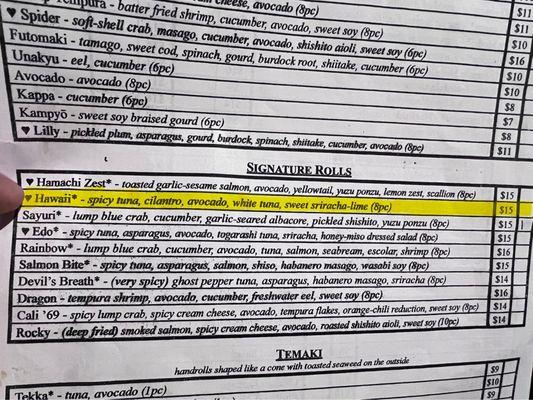 Tempura - batter fried shrimp, cucumber, avocado, sweet soy (8pc)
cheese, avocado (8pc) $11
♥ Spider - soft-shell crab, masago, cucumber, avocado, shishito aioli, sweet soy (6pc) $11
Futomaki - tamago, sweet cod, spinach, gourd, burdock root, shiitake, cucumber (6pc) $10
Unakyu - eel, cucumber (6pc) $16
Avocado - avocado (8pc) $10
Kappa - cucumber (6pc) $10
Kampyō - sweet soy braised gourd (6pc) $8
$7
$8
♥ Lilly - pickled plum, asparagus, gourd, burdock, spinach, shiitake, cucumber, avocado (8pc) $11
SIGNATURE ROLLS
♥ Hamachi Zest* - toasted garlic-sesame salmon, avocado, yellowtail, yuzu ponzu, lemon zest, scallion (8pc) $15
♥ Hawaii* - spicy tuna, cilantro, avocado, white tuna, sweet sriracha-lime (8pc) $15
Sayuri* - lump blue crab, cucumber, garlic-seared albacore, pickled shishito, yuzu ponzu (8pc) $15
♥ Edo* - spicy tuna, asparagus, avocado, togarashi tuna, sriracha, honey-miso dressed salad (8pc) $15
Rainbow* - lump blue crab, cucumber, avocado, tuna, salmon, seabream, escolar, shrimp (8pc) $16
Salmon Bite* - spicy tuna, asparagus, salmon, shiso, habanero masago, wasabi soy (8pc) $15
Devil's Breath* - (very spicy) ghost pepper tuna, asparagus, habanero masago, sriracha (8pc) $14
Dragon - tempura shrimp, avocado, cucumber, freshwater eel, sweet soy (8pc) $16
Cali '69 - spicy lump crab, spicy cream cheese, avocado, tempura flakes, orange-chili reduction, sweet soy (8pc) $14
Rocky - (deep fried) smoked salmon, spicy cream cheese, avocado, roasted shishito aioli, sweet soy (10pc) $14
TEMAKI
handrolls shaped like a cone with toasted seaweed on the outside
Tekka* - tuna, avocado (1pc) $9
$10
$9